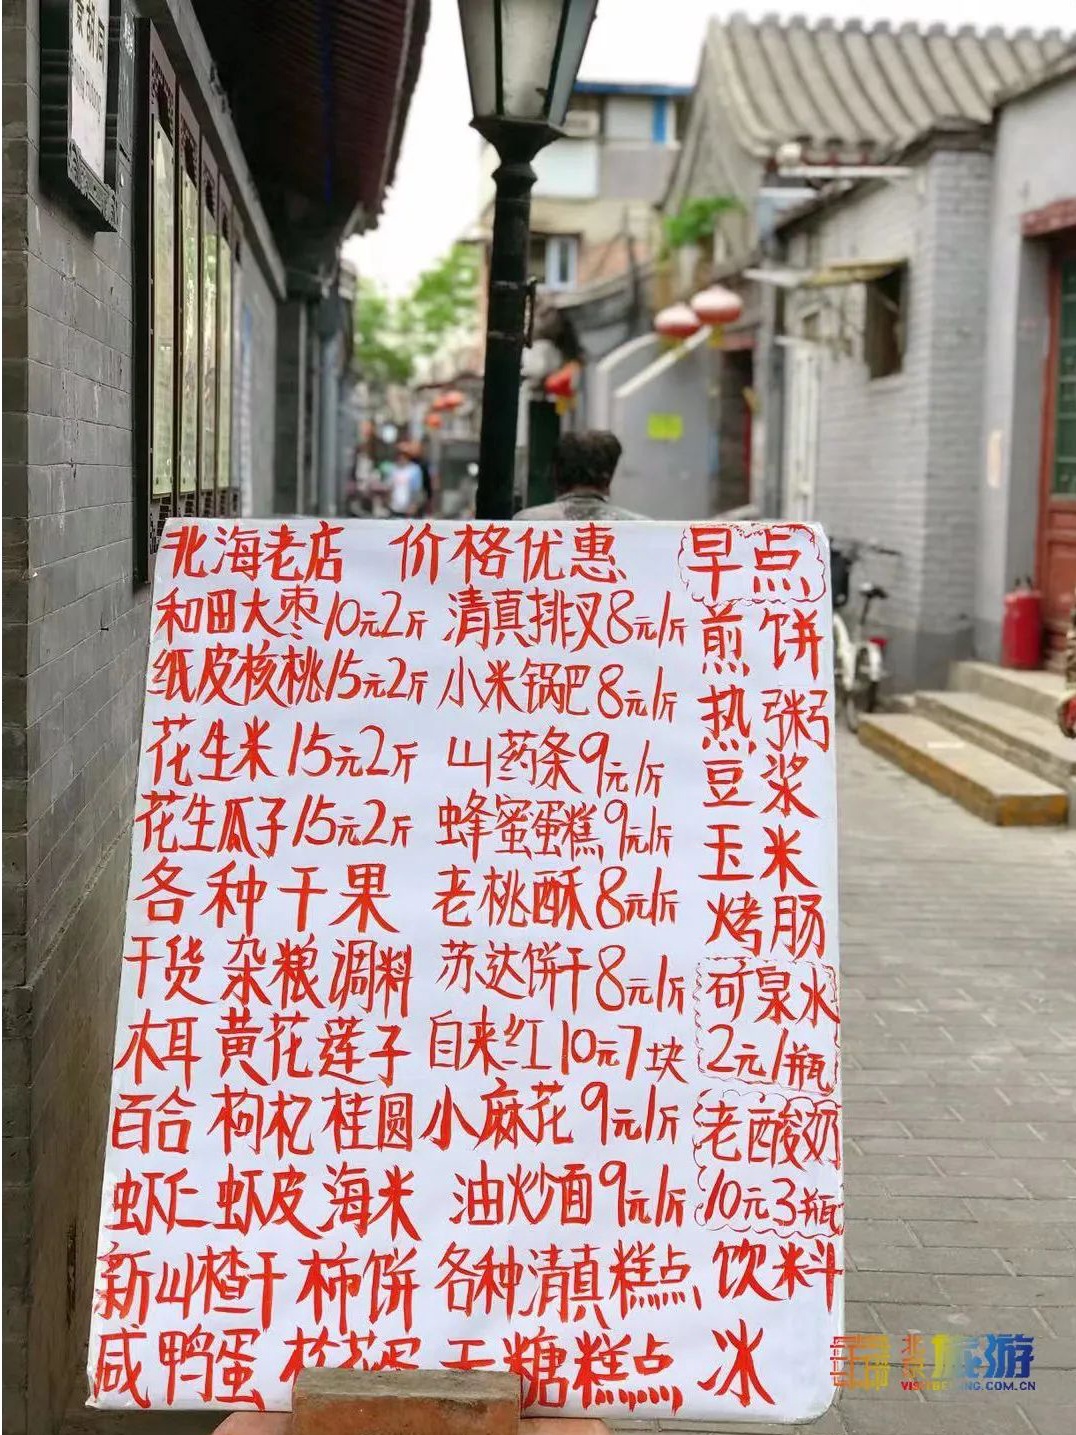 北海老店 价格优惠 早点
和田大枣10元2斤 清真排叉8元1斤 煎饼
纸皮核桃15元2斤 小米锅巴8元1斤 热粥
花生米15元2斤 山药条9元1斤 豆浆
花生瓜子15元2斤 蜂蜜蛋糕9元1斤 玉米
各种干果 老桃酥8元1斤 烤肠
干货杂粮调料 苏达饼干8元1斤 矿泉水
木耳黄花莲子 自来红10元7块 2元1瓶
百合枸杞桂圆 小麻花9元1斤 老酸奶
虾仁虾皮海米 油炒面9元1斤 10元3瓶
新山楂干柿饼 各种清真糕点 饮料
咸鸭蛋 松花蛋 无糖糕点 冰
旅游
VISITBEIJING.COM.CN